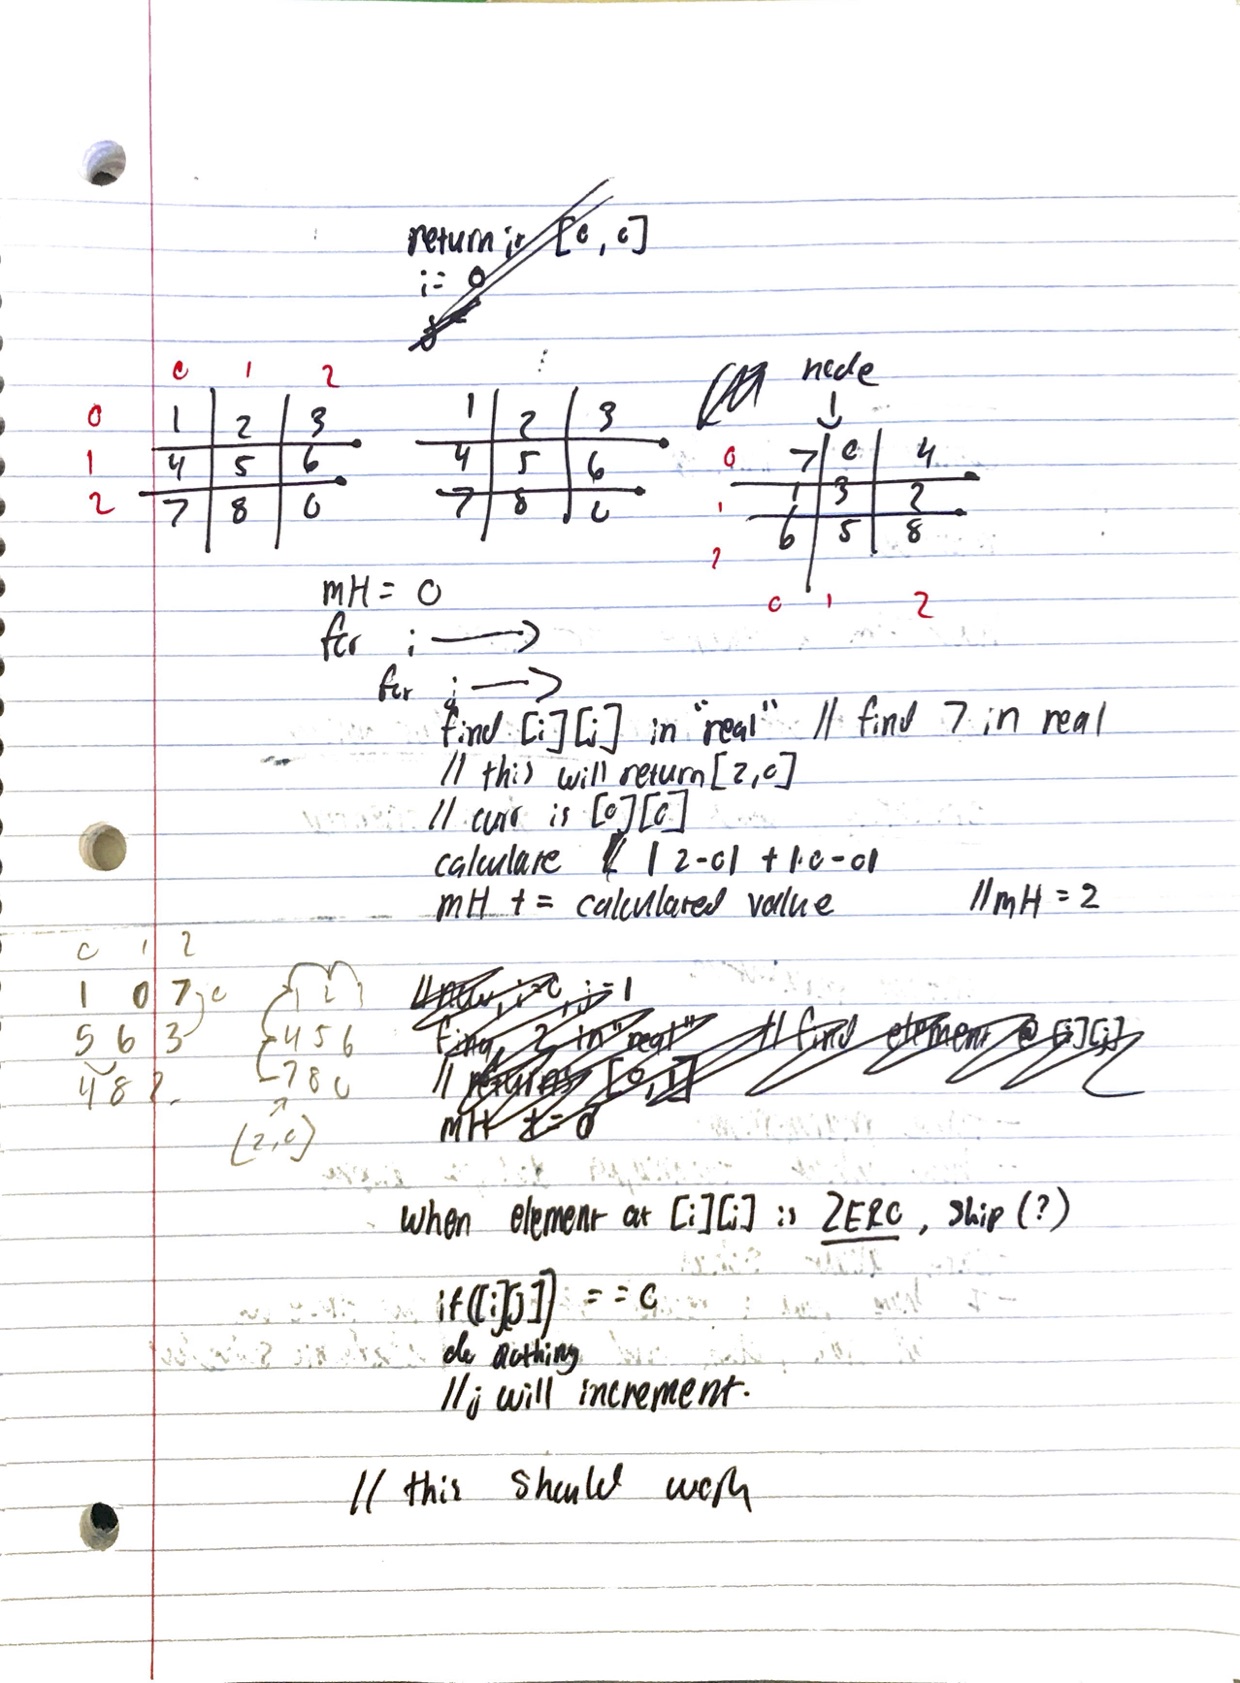 return it [0, 0]
i = 0
j =
0 1 2
0 1 2 3
1 4 5 6
2 7 8 0
1 2 3
4 5 6
7 8 0
node
0 7 0 4
1 1 3 2
2 6 5 8
0 1 2
mH = 0
for i
for j
find [i][j] in "real" // find 7 in real
// this will return [2,0]
// curr is [0][0]
calculate |2-0| + |0-0|
mH += calculated value //mH = 2
0 1 2
1 0 7
5 6 3
4 8 2
0
1 2
4 5 6
7 8 0
(2,0)
// now, i=0, j=1
find 2 in "real" // find element @ [i][j]
// returns [0,1]
mH += 0
when element at [i][j] is ZERO, skip (?)
if([i][j]) == 0
do nothing
//j will increment.
// this should work